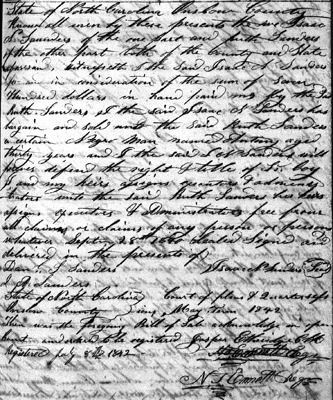 State of North Carolina Onslow County
Know all men by these presents that we Isaac
S. Sanders of the one part and Ruth Sanders
of the other part both of the County and State
aforesaid, witnesseth I the said Isaac S Sanders
for in consideration of the sum of Seven
Hundred dollars in hand paid me by the said
Ruth Sanders, I the said Isaac S Sanders has
bargain and sold unto the said Ruth Sanders
a certain Negro Man named Antony aged
thirty years and I the said Sanders will
forever defend the right & title of Boy
and my heirs assigns executors
with the said Sanders her heirs
assigns executors & Administrators free from
the claims or claims of any person or persons
whatever Sept 28th Sealed Signed and
delivered in the presents of
Sanders Isaac S Sanders Seal
Sanders
State of North Carolina Court of pleas & Quarter
Onslow County May term 1842
Then was the foregoing Bill of Sale acknowledged in open
Court and ordered to be registered Jasper Etheridge Clk
Registered July 8th 1842
Regr